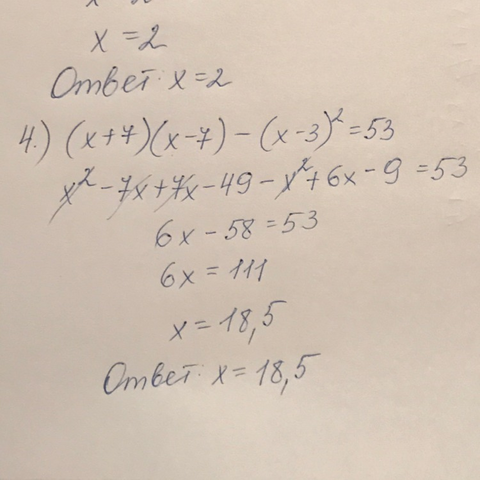 x = 2
Ответ: x = 2
4.) (x+7)(x-7) - (x-3)² = 53
x² - 7x + 7x - 49 - x² + 6x - 9 = 53
6x - 58 = 53
6x = 111
x = 18,5
Ответ: x = 18,5